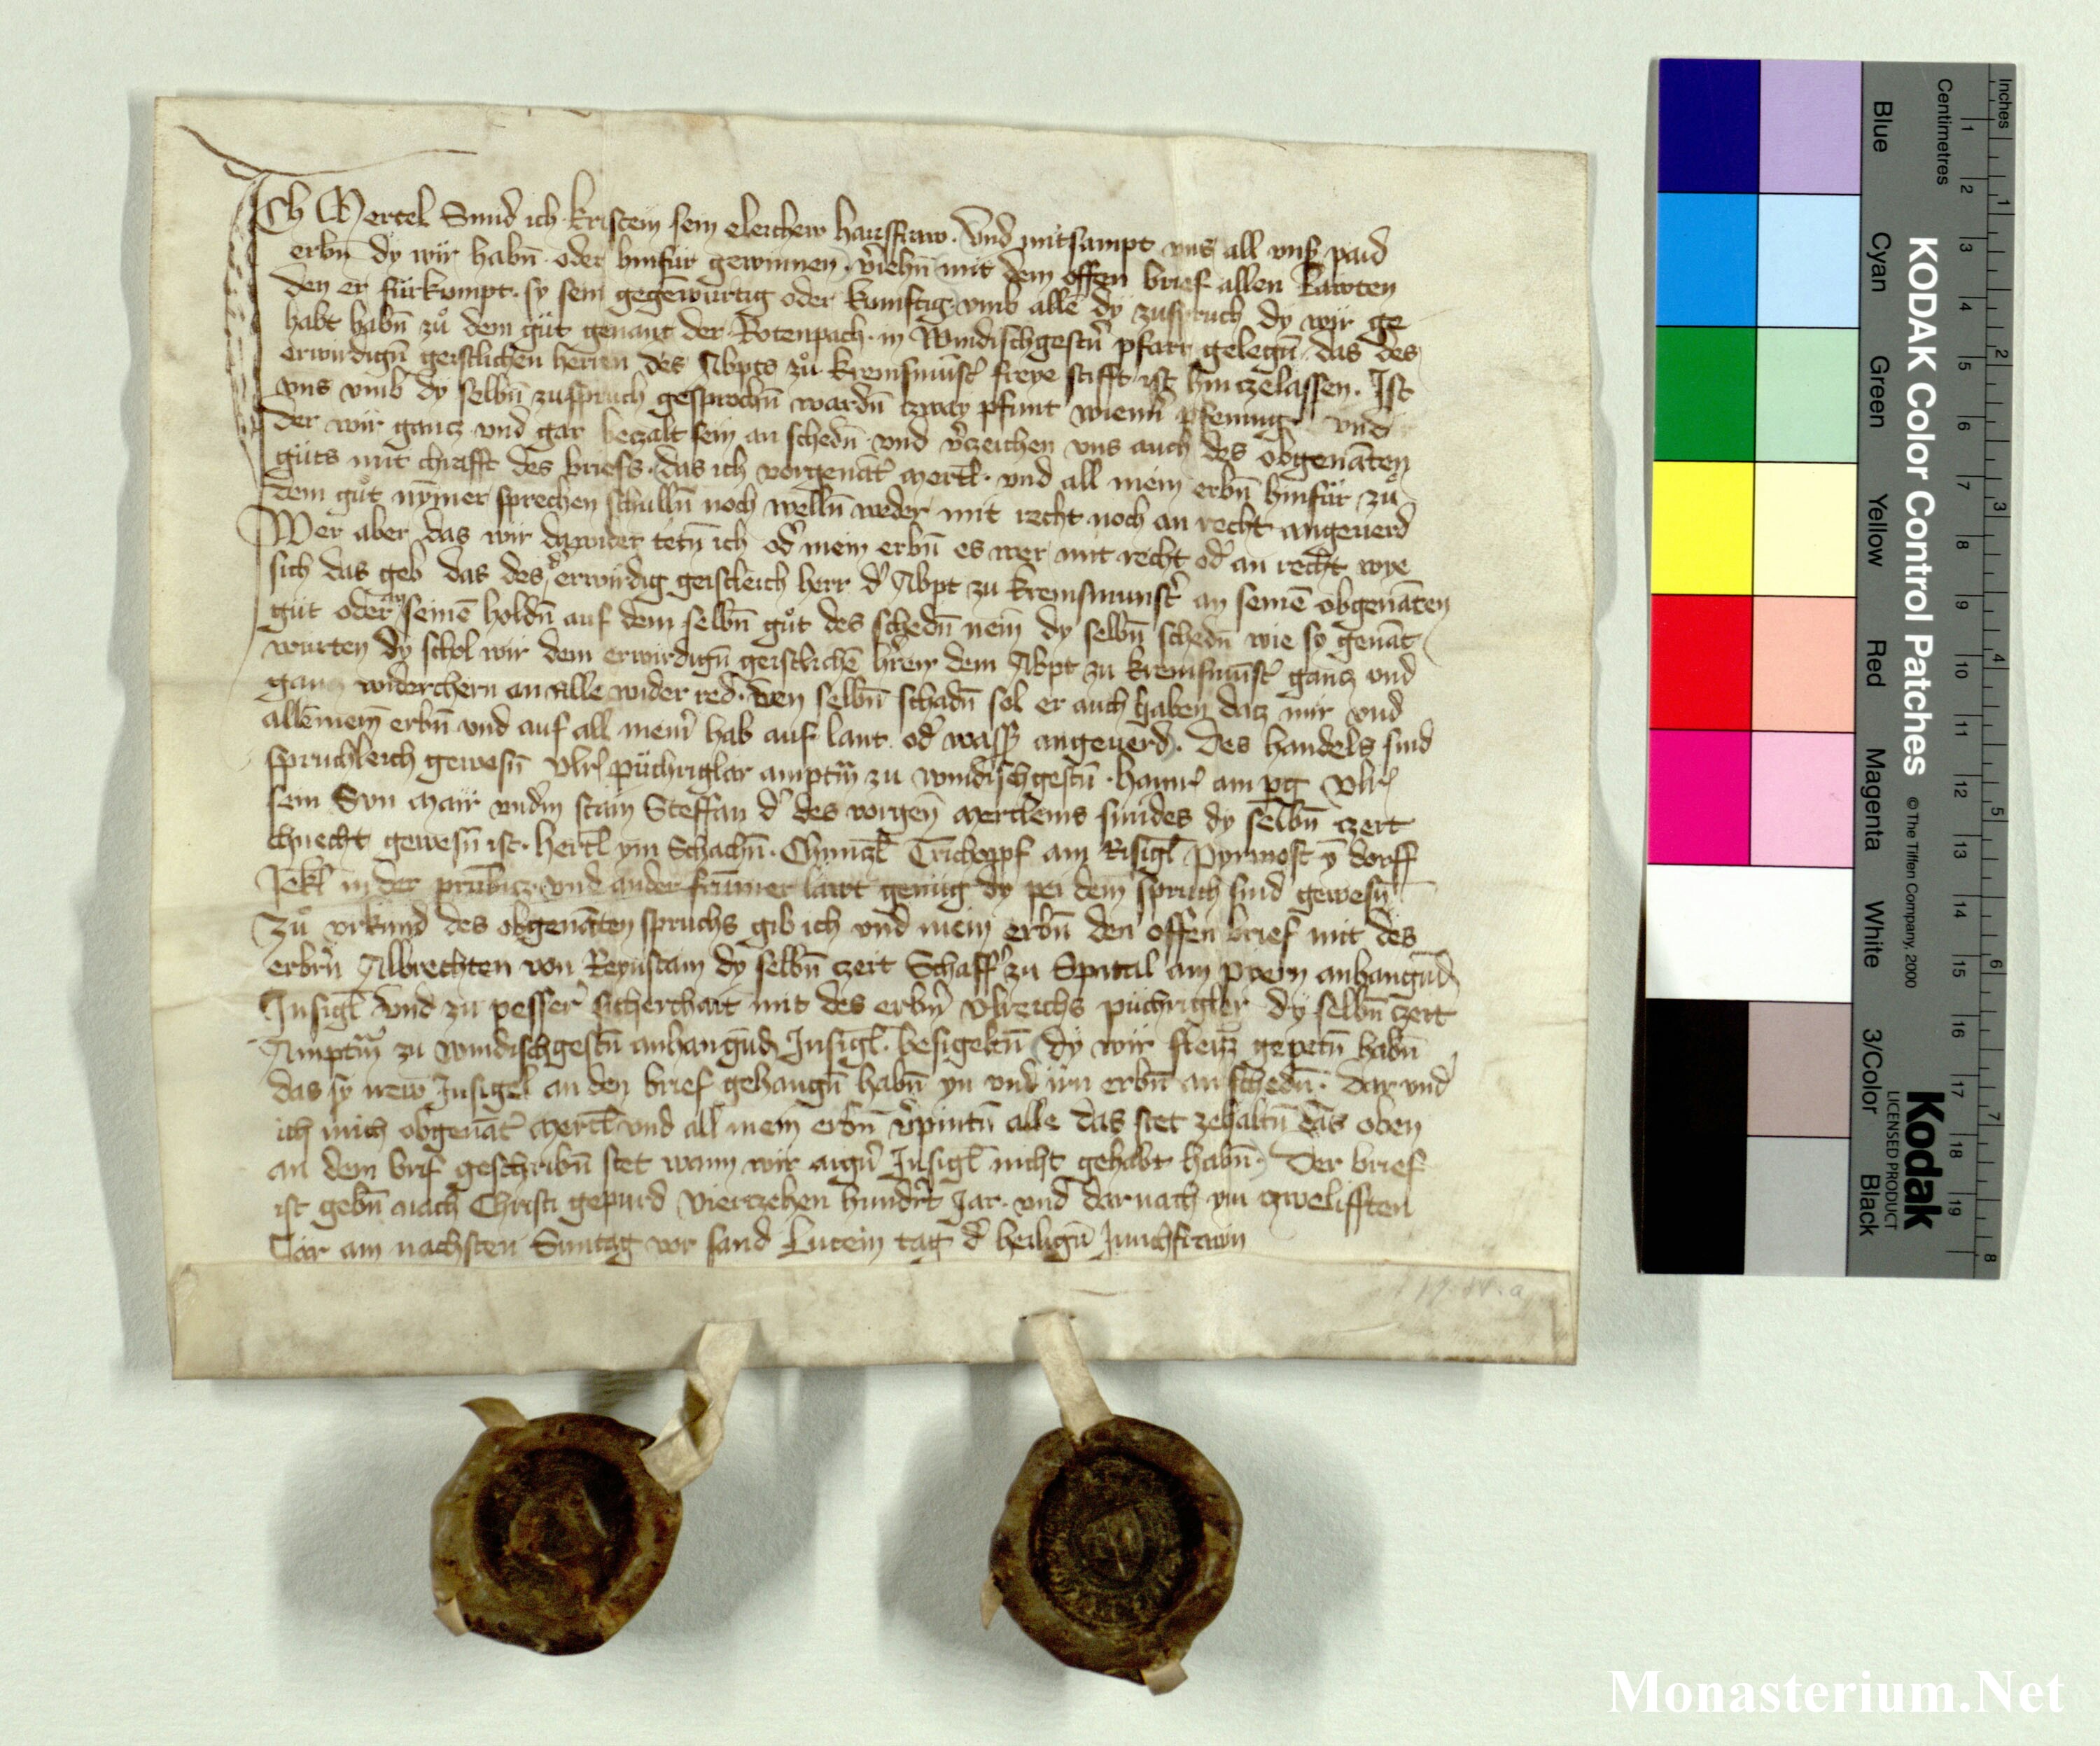 Ich Mertel Sunid ich kristein sein eleichew hausfraw. Vnd mitsampt vns all vnß paid
erbn̄ dy wir habn̄ oder hinfür gewinnen v̾iehn̄ mit dem offen brief allen Lawten
den er fürkumpt. sy sein gegewürtig oder kunftig. vmb alle dy zuspruch dy wir ge
habt habn̄ zů dem gůt genant der Rotenpach. in Windischgestn̾ pfarr gelegn̄ das des
erwirdign̄ geistlichen herren des Abpts zů kremsmūst̾ freye stifft ist hinczelassen. Ist
vns vmb dy selbn̄ zuspruch gesprochn̄ wardn̄ czway pfunt wienn̾ pfening vnd
der wir gancz vnd gar beczalt sein an schedn̄ vnd v̾zeichen vns auch des obgenāten
gůts mit chrafft des briefs. das ich vorgenāt̾ mertl̄. vnd all mein erbn̄ hinfür zů
dem gůt nȳmer sprechen schulln̄ noch welln̄ weder mit recht noch an recht angeuerd
Wer aber das wir dawider tetn̄ ich od̾ mein erbn̄ es wer mit recht od̾ an recht wye
sich das geb das des d̾ erwirdig geistleich herr d̾ Abpt zu kremsmunst̾ an seinē obgenāten
gůt oder an seinē holdn̄ auf dem selbn̄ gůt des schedn̄ nem dy selbn̄ schedn̄ wie so genāt
wurten dy schol wir dem erwirdign̄ geistlichē h̾ren dem Abpt zu kremsmūst̾ gancz vnd
gancz widerchern an alle wider red. den selbn̄ schadn̄ sol er auch haben datz mir vnd
allē mein̄ erbn̄ vnd auf all mein̾ hab auf lant od̾ wass̾ angeuerd. Des handels sind
spruchleich gewesn̄ Vlr̾ püchriglar amptm̄ zu windischgestn̄. hanns am pg Vlr̾
sein Sun mair vnd̾m stain Steffan d̾ des vorgen̄ mertleins sunides dy selbn̄ czeit
chnecht gewesn̄ ist. hertl̄ ym Schachn̄. Chunczl̄ Trichopf am Risigl̄ Pyrmost ȳ dorff
Jekl̄ in der prūbicz vnd ander frūmer läwt genůg dy pei dem spruch sind gewesn̄
Zů vrkund des obgenāten spruchs gib ich vnd mein erbn̄ den offen brief mit des
erbrn̄ Albrechten von Reyustain dy selbn̄ czeit Schaff̾ zu Spital am pyern anhangūdē
Insigl̄ Vnd zu pesser̾ sicherchait mit des erbm̾ Vlreichs püchrigler dy selbn̄ czeit
Amptm̄ zu windischgestn̄ anhangūdē Insigl̄. besigeltn̄ dy wir fleiz gepetn̄ habn̄
das sy irew Insigel an den brief gehangn̄ habn̄ yn vnd irn erbn̄ an schedn̄. Dar vnd̾
ich mich obgenāt̾ mertl̄ vnd all mein erbn̄ v̾pintn̄ alle das stet zehaltn̄ das oben
an dem brif geschribn̄ stet wann wir aign̾ Insigl̄ nicht gehabt habn̄. Der brief
ist gebn̄ nach Christi gepurd Viertzehen hund̾t Jar. vnd darnach ym zweliften
Jar am nachsten Suntag vor sand Lucein tag d̾ heilign̄ Junchfrawn
KODAK Color Control Patches
© The Tiffen Company, 2000
Kodak
LICENSED PRODUCT
Inches 1 2 3 4 5 6 7 8
Centimetres 1 2 3 4 5 6 7 8 9 10 11 12 13 14 15 16 17 18 19
Blue Cyan Green Yellow Red Magenta White 3/Color Black
Monasterium.Net